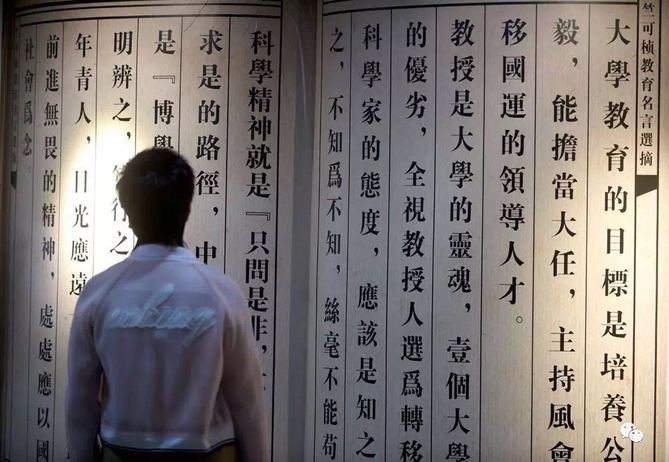 竺可楨教育名言選摘
大學教育的目標是培養公
毅，能擔當大任，主持風會
移國運的領導人才。
教授是大學的靈魂，壹個大學
的優劣，全視教授人選爲轉移
科學家的態度，應該是知之
之，不知爲不知，絲毫不能苟
科學精神就是『只問是非，
求是的路徑，中
是『博學
明辨之，
行之
年青人，目光應遠
前進無畏的精神，處處應以國
社會爲念。